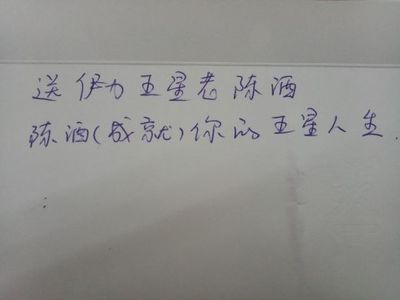 送伊力五星老陈酒
陈酒(成就)你的五星人生.